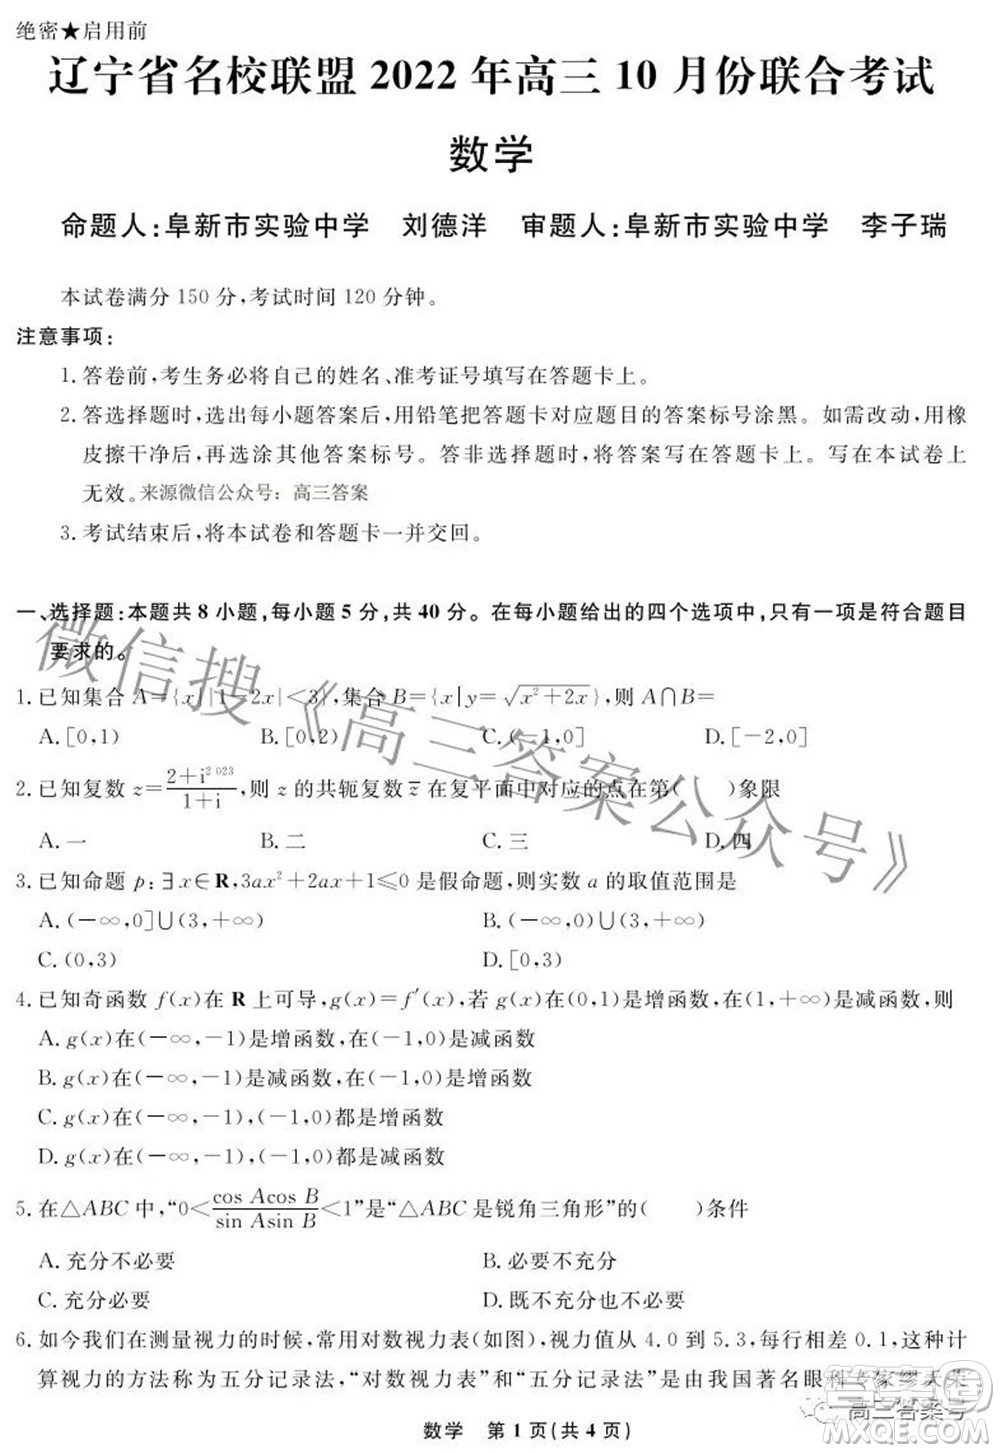 绝密★启用前
辽宁省名校联盟 2022 年高三 10 月份联合考试
数学
命题人:阜新市实验中学 刘德洋 审题人:阜新市实验中学 李子瑞
本试卷满分 150 分,考试时间 120 分钟。
注意事项:
1. 答卷前,考生务必将自己的姓名、准考证号填写在答题卡上。
2. 答选择题时,选出每小题答案后,用铅笔把答题卡对应题目的答案标号涂黑。如需改动,用橡
皮擦干净后,再选涂其他答案标号。答非选择题时,将答案写在答题卡上。写在本试卷上
无效。 来源微信公众号:高三答案
3. 考试结束后,将本试卷和答题卡一并交回。
一、选择题:本题共 8 小题,每小题 5 分,共 40 分。在每小题给出的四个选项中,只有一项是符合题目
要求的。
1. 已知集合 A={x||1-2x|<3},集合 B={x|y=√(x²+2x)},则 A∩B=
A. [0,1) B. [0,2) C. (-1,0] D. [-2,0]
2. 已知复数 z=(2+i²⁰²³)/(1+i),则 z 的共轭复数 z̄ 在复平面中对应的点在第( )象限
A. 一 B. 二 C. 三 D. 四
3. 已知命题 p:∃x∈R,3ax²+2ax+1≤0 是假命题,则实数 a 的取值范围是
A. (-∞,0]∪(3,+∞) B. (-∞,0)∪(3,+∞)
C. (0,3) D. [0,3)
4. 已知奇函数 f(x)在 R 上可导,g(x)=f′(x),若 g(x)在(0,1)是增函数,在(1,+∞)是减函数,则
A. g(x)在(-∞,-1)是增函数,在(-1,0)是减函数
B. g(x)在(-∞,-1)是减函数,在(-1,0)是增函数
C. g(x)在(-∞,-1),(-1,0)都是增函数
D. g(x)在(-∞,-1),(-1,0)都是减函数
5. 在△ABC 中,“0<(cos Acos B)/(sin Asin B)<1”是“△ABC 是锐角三角形”的( )条件
A. 充分不必要 B. 必要不充分
C. 充分必要 D. 既不充分也不必要
6. 如今我们在测量视力的时候,常用对数视力表(如图),视力值从 4.0 到 5.3,每行相差 0.1,这种计
算视力的方法称为五分记录法,“对数视力表”和“五分记录法”是由我国著名眼科专家缪天荣
数学 第 1 页(共 4 页)
微信搜《高三答案公众号》
高三答案号